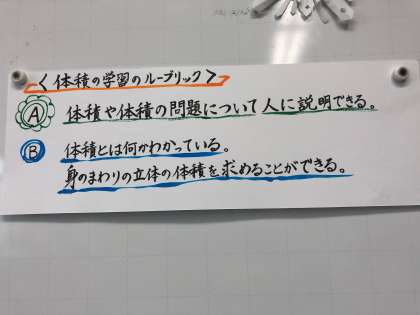 <体積の学習のルーブリック>
A 体積や体積の問題について人に説明できる。
B 体積とは何かわかっている。
身のまわりの立体の体積を求めることができる。